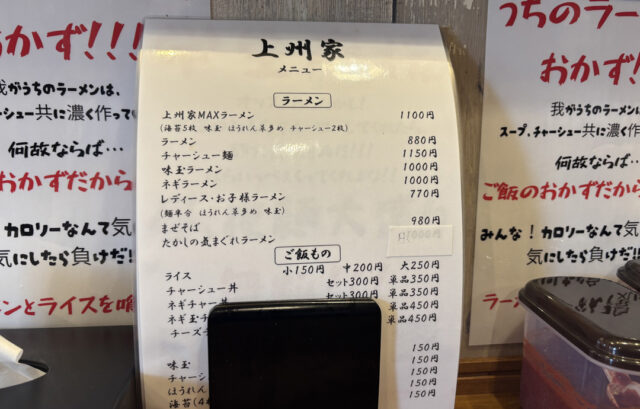 おかず!!!
我がうちのラーメンは、
チャーシュー共に濃く作ってい
何故ならば…
おかずだから
！カロリーなんて気
気にしたら負けだ!!
メンとライスを喰
上州家
メニュー
ラーメン
上州家MAXラーメン 1100円
(海苔5枚 味玉 ほうれん草多め チャーシュー2枚)
ラーメン 880円
チャーシュー麺 1150円
味玉ラーメン 1000円
ネギラーメン 1000円
レディース・お子様ラーメン 770円
(麺半分 ほうれん草多め 味玉)
まぜそば 980円
たかしの気まぐれラーメン
ご飯もの
ライス 小150円 中200円 大250円
チャーシュー丼 セット300円 単品350円
ネギチャー丼 セット300円 単品350円
ネギ玉チ 単品450円
チーズチ 単品450円
150円
味玉 150円
チャーシ 150円
ほうれん 150円
海苔(4 150円
うちのラー
おかず!
我がうちのラーメン
スープ、チャーシュー共に濃
何故ならば
ご飯のおかずだか
みんな！カロリーなん
気にしたら負
ラー